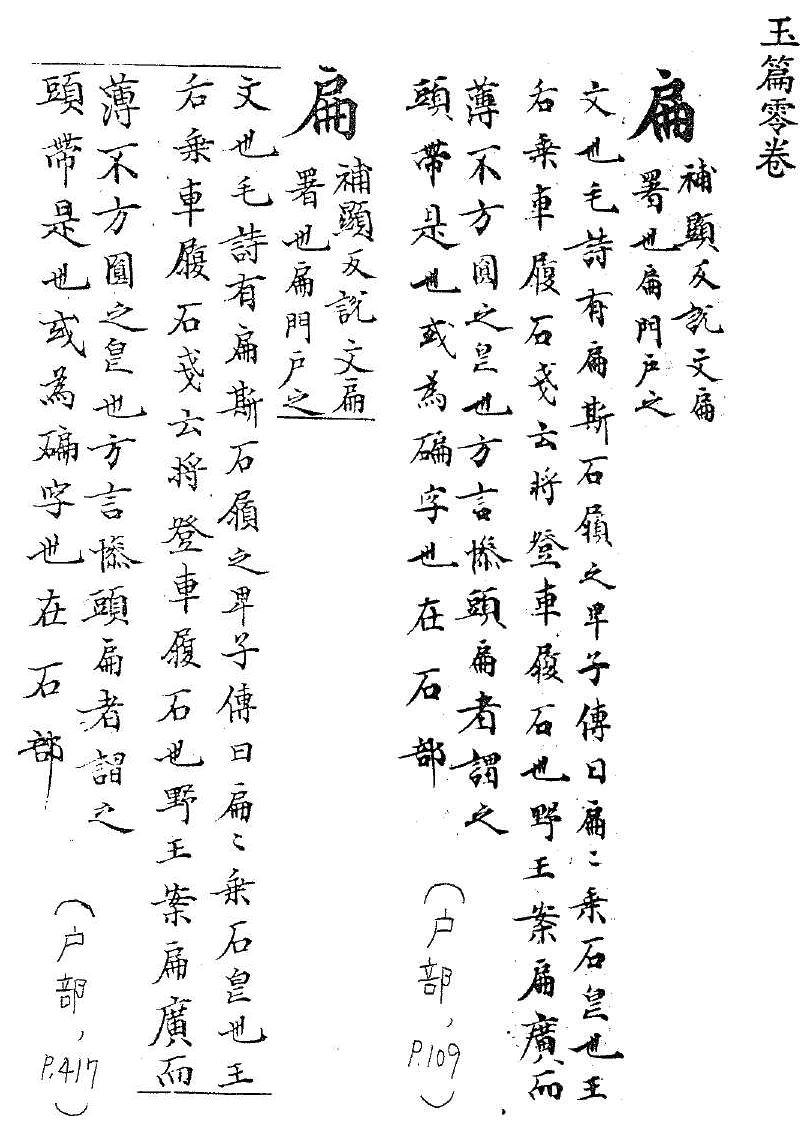 玉篇零卷
扁
補顯反說文扁
署也扁門戶之
文也毛詩有扁斯石履之卑子傳曰扁〻乘石皃也王
后乘車履石戔云將登車履石也野王案扁廣而
薄不方圓之皃也方言幧頭扁者謂之
頭帶是也或為碥字也在石部
(户部,P.109)
扁
補顯反說文扁
署也扁門戶之
文也毛詩有扁斯石履之卑子傳曰扁〻乘石皃也王
后乘車履石戔云將登車履石也野王案扁廣而
薄不方圓之皃也方言幧頭扁者謂之
頭帶是也或為碥字也在石部
(户部,P.417)